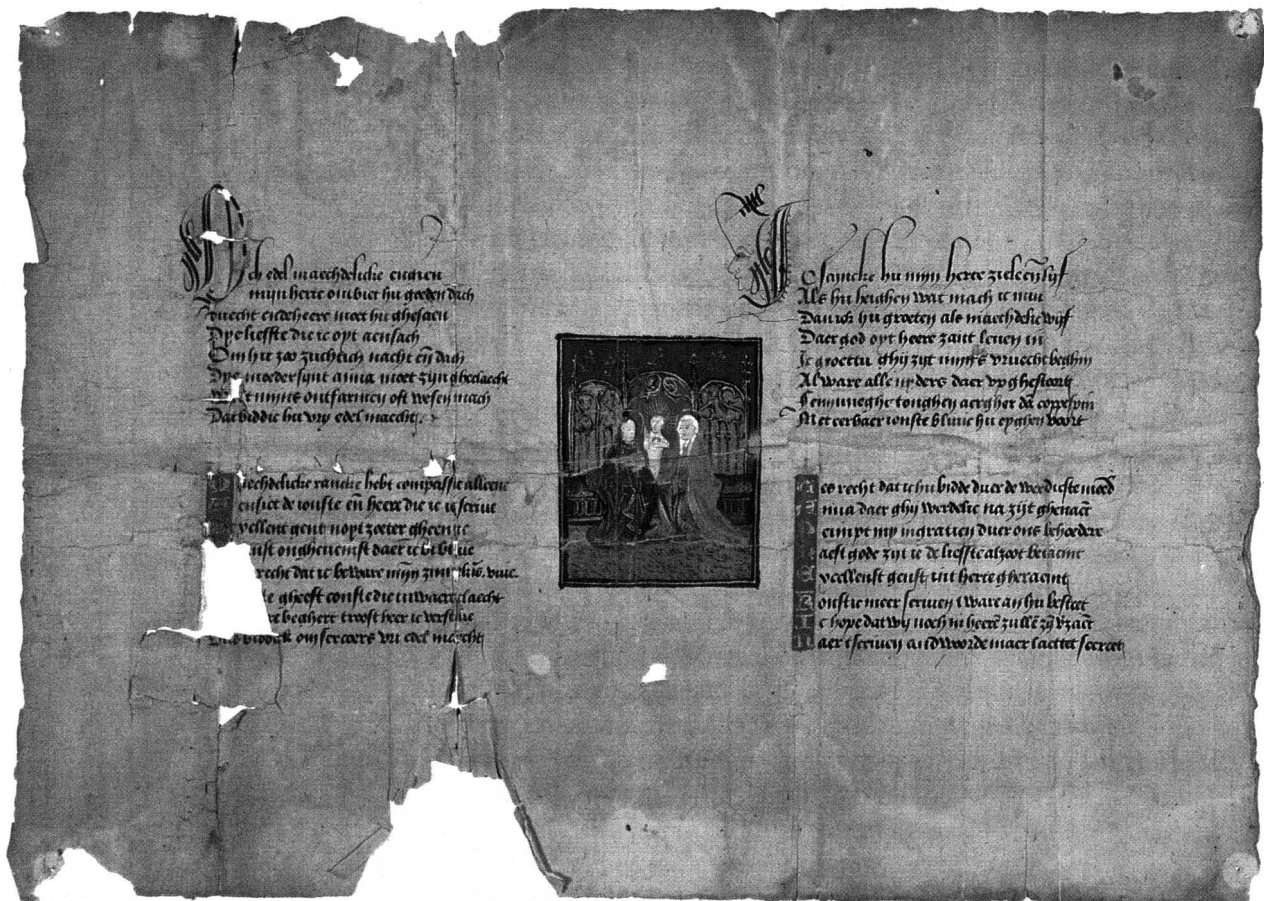 Och edel maechdelicke engien
mijn herte ontbiet hu goeden dach
vruecht ende heere moet hu ghescien
Dye liefste die ic oyt aensach
Om hu zoo zuchtich nacht en̄ dach
Dye moeder synt anna moet zijn gheclaecht
mijns ontfarmen oft wesen mach
Dat biddic hu vry edel maecht
maechdelicke rancke hebt compassie alleene
ensiet de jonste en̄ heere die ic u scrive
vellent gent noyt zoeter gheene
jonst ongheveinst daer ic bi blive
recht dat ic beware mijn zin
gheeft conste die tuwaert claecht
beghert troost heer ic verstive
Dus biddick om secoers vry edel maecht
Ic scincke hu mijn herte ziele en̄ lijf
Als hu heighen wat mach ic min
Dan ick hu groeten als maechdelic wijf
Daer god oyt heere zant leven in
Ic groettu ghij zijt mijns vruecht beghin
Al ware alle nyders daer op ghestoort
Fenijneghe tonghen aergher dā coppespin
Met eerbaer jonste blijvic hu eyghen voort
es recht dat ic hu bidde duer de weerdichste moed
nna daer ghij weerdelic na zijt ghenaēt
eempt my in gracien duer ons behoedere
aest gode zijt ic de liefste alzoot betaemt
vuellenst genst uut herte gheraemt
onstic meer scriven tware an hu besteet
c hope dat wij noch in heerē zullē zij v̄zaēt
aer tscriven andwoorde maer laettet secreet